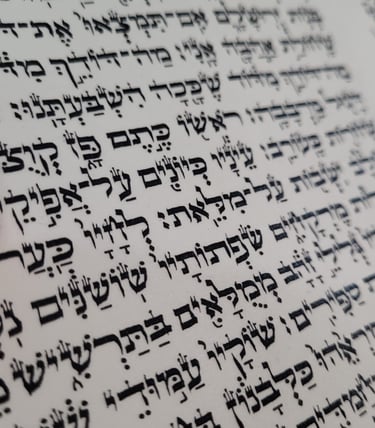 בְּנוֹת יְרוּשָׁלָ͏ִם אִם־תִּמְצְאוּ אֶת־
שֶׁחוֹלַת אַהֲבָה אָנִי׃ מַה־דּוֹדֵךְ
מַה־דּוֹדֵךְ מִדּוֹד שֶׁכָּכָה הִשְׁבַּעְתָּנוּ׃
דָּגוּל מֵרְבָבָה׃ רֹאשׁוֹ כֶּתֶם פָּז
שְׁחֹרוֹת כָּעוֹרֵב׃ עֵינָיו כְּיוֹנִים עַל־אֲפִיקֵי
יֹשְׁבוֹת עַל־מִלֵּאת׃ לְחָיָו
מֶרְקָחִים שִׂפְתוֹתָיו שׁוֹשַׁנִּים
גְּלִילֵי זָהָב מְמֻלָּאִים בַּתַּרְשִׁישׁ
סַפִּירִים׃ שׁוֹקָיו עַמּוּדֵי
מַרְאֵהוּ כַּלְּבָנוֹן